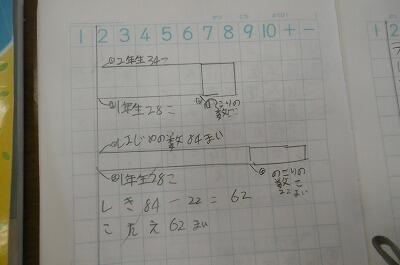 1 2 3 4 5 6 7 8 9 10 + -
①2年生34こ
②1年生28こ
③のこりの
数こ
①はじめの数84まい
②1年生28こ
③のこりの
数こ
22まい
しき84-22=62
こたえ62まい